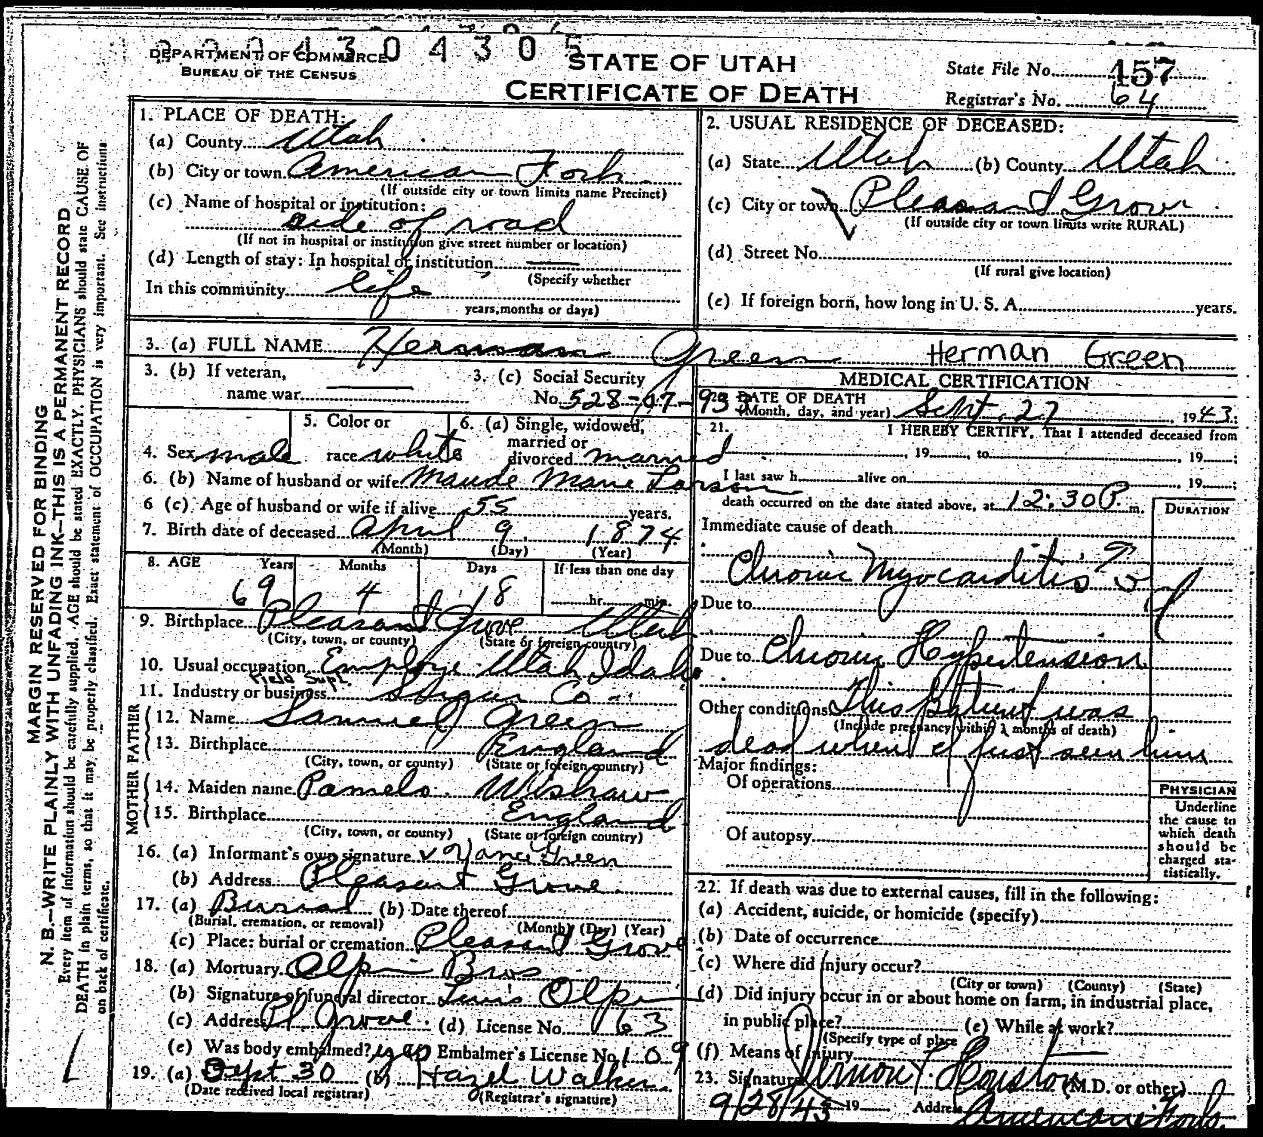 0 0 0 4 3 0 4 3 0 5
DEPARTMENT OF COMMERCE
BUREAU OF THE CENSUS
STATE OF UTAH
CERTIFICATE OF DEATH
State File No. 457
Registrar's No. 64
MARGIN RESERVED FOR BINDING
N. B.—WRITE PLAINLY WITH UNFADING INK—THIS IS A PERMANENT RECORD
Every item of information should be carefully supplied. AGE should be stated EXACTLY. PHYSICIANS should state CAUSE OF
DEATH in plain terms, so that it may be properly classified. Exact statement of OCCUPATION is very important. See instructions
on back of certificate.
1. PLACE OF DEATH:
(a) County Utah
(b) City or town American Fork
(If outside city or town limits name Precinct)
(c) Name of hospital or institution:
side of road
(If not in hospital or institution give street number or location)
(d) Length of stay: In hospital or institution —
(Specify whether
In this community life
years, months or days)
2. USUAL RESIDENCE OF DECEASED:
(a) State Utah (b) County Utah
(c) City or town Pleasant Grove
(If outside city or town limits write RURAL)
(d) Street No.
(If rural give location)
(e) If foreign born, how long in U. S. A. years.
3. (a) FULL NAME Herman Green Herman Green
3. (b) If veteran,
name war —
3. (c) Social Security
No. 528-07-93
4. Sex male
5. Color or
race white
6. (a) Single, widowed,
married or
divorced married
6. (b) Name of husband or wife Maude Marie Larson
6 (c) Age of husband or wife if alive 55 years.
7. Birth date of deceased April 9 1874
(Month) (Day) (Year)
8. AGE Years Months Days If less than one day
69 4 18 hr. min.
9. Birthplace Pleasant Grove Utah
(City, town, or county) (State or foreign country)
10. Usual occupation Employe Utah Idaho
Field Supt
11. Industry or business Sugar Co
FATHER
12. Name Samuel Green
13. Birthplace England
(City, town, or county) (State or foreign country)
MOTHER
14. Maiden name Pamela Wishaw
15. Birthplace England
(City, town, or county) (State or foreign country)
16. (a) Informant's own signature Vance Green
(b) Address Pleasant Grove
17. (a) Burial (b) Date thereof
(Burial, cremation, or removal) (Month) (Day) (Year)
(c) Place: burial or cremation Pleasant Grove
18. (a) Mortuary Olpin Bros
(b) Signature of funeral director Lewis Olpin
(c) Address Pl Grove (d) License No. 63
(e) Was body embalmed? yes Embalmer's License No. 109
19. (a) Sept 30 (b) Hazel Walker
(Date received local registrar) (Registrar's signature)
MEDICAL CERTIFICATION
20. DATE OF DEATH
(Month, day, and year) Sept. 27 1943
21. I HEREBY CERTIFY, That I attended deceased from
, 19 , to , 19 ;
I last saw h alive on , 19 ;
death occurred on the date stated above, at 12:30 P. m.
DURATION
Immediate cause of death
Chronic Myocarditis ?
Due to
Due to Chronic Hypertension
Other conditions This patient was
(Include pregnancy within 3 months of death)
dead when I first seen him
Major findings:
Of operations
Of autopsy
PHYSICIAN
Underline
the cause to
which death
should be
charged sta-
tistically.
22. If death was due to external causes, fill in the following:
(a) Accident, suicide, or homicide (specify)
(b) Date of occurrence
(c) Where did injury occur?
(City or town) (County) (State)
(d) Did injury occur in or about home on farm, in industrial place,
in public place? (e) While at work?
(Specify type of place
(f) Means of injury
23. Signature Vernon F. Houston (M.D. or other)
9/28/43 19 Address American Fork